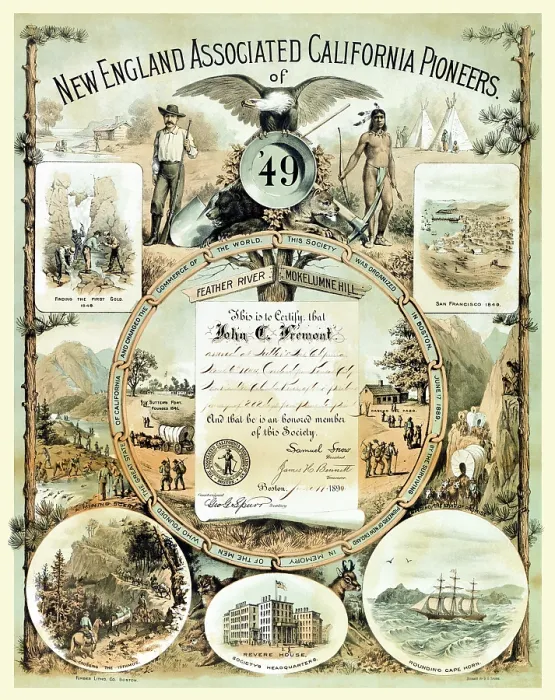 NEW ENGLAND ASSOCIATED CALIFORNIA PIONEERS.
of
'49
FINDING THE FIRST GOLD.
1848
SAN FRANCISCO 1849.
THIS SOCIETY
WAS ORGANIZED
IN BOSTON,
JUNE 17, 1889,
BY THE SURVIVING
PIONEERS OF NEW ENGLAND
IN MEMORY
OF THE MEN
WHO FOUNDED
THE GREAT STATE
OF CALIFORNIA
AND CHANGED THE
COMMERCE OF
THE WORLD.
FEATHER RIVER
MOKELUMNE HILL
This is to Certify, that
John C. Fremont
And that he is an honored member
of this Society.
Samuel Snow
President
James H. Bennett
Boston, June 17 1890
Geo. G. Spurr
Secretary
SUTTERS FORT.
FOUNDED 1841.
MINING SCENE
CROSSING THE ISTHMUS.
REVERE HOUSE.
SOCIETY'S HEADQUARTERS.
ROUNDING CAPE HORN.
FORBES LITHO. CO. BOSTON.